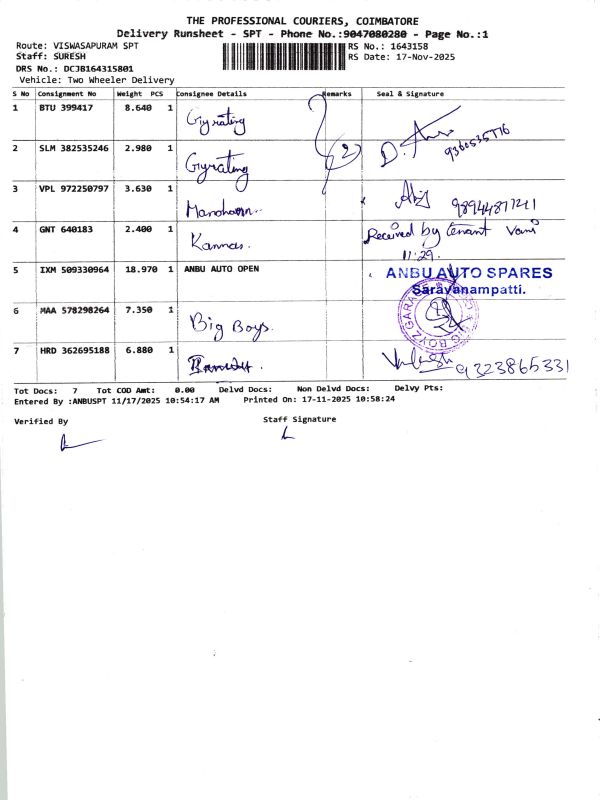 THE PROFESSIONAL COURIERS, COIMBATORE
Delivery Runsheet - SPT - Phone No.:9047080280 - Page No.:1
Route: VISWASAPURAM SPT
RS No.: 1643158
Staff: SURESH
RS Date: 17-Nov-2025
DRS No.: DCJB164315801
Vehicle: Two Wheeler Delivery
S No Consignment No Weight PCS Consignee Details Remarks Seal & Signature
1 BTU 399417 8.640 1 Gyrating
(2) D. 9360535776
2 SLM 382535246 2.980 1 Gyrating
3 VPL 972250797 3.630 1 Manoharn.. 98944877211
4 GNT 640183 2.400 1 Kannas. Received by tenant Vani
11:29.
5 IXM 509330964 18.970 1 ANBU AUTO OPEN ANBU AUTO SPARES
Saravanampatti.
6 MAA 578298264 7.350 1 Big Boys. BIG BOYZ GARAGE
7 HRD 362695188 6.880 1 9323865331
Tot Docs: 7 Tot COD Amt: 0.00 Delvd Docs: Non Delvd Docs: Delvy Pts:
Entered By :ANBUSPT 11/17/2025 10:54:17 AM Printed On: 17-11-2025 10:58:24
Verified By
Staff Signature